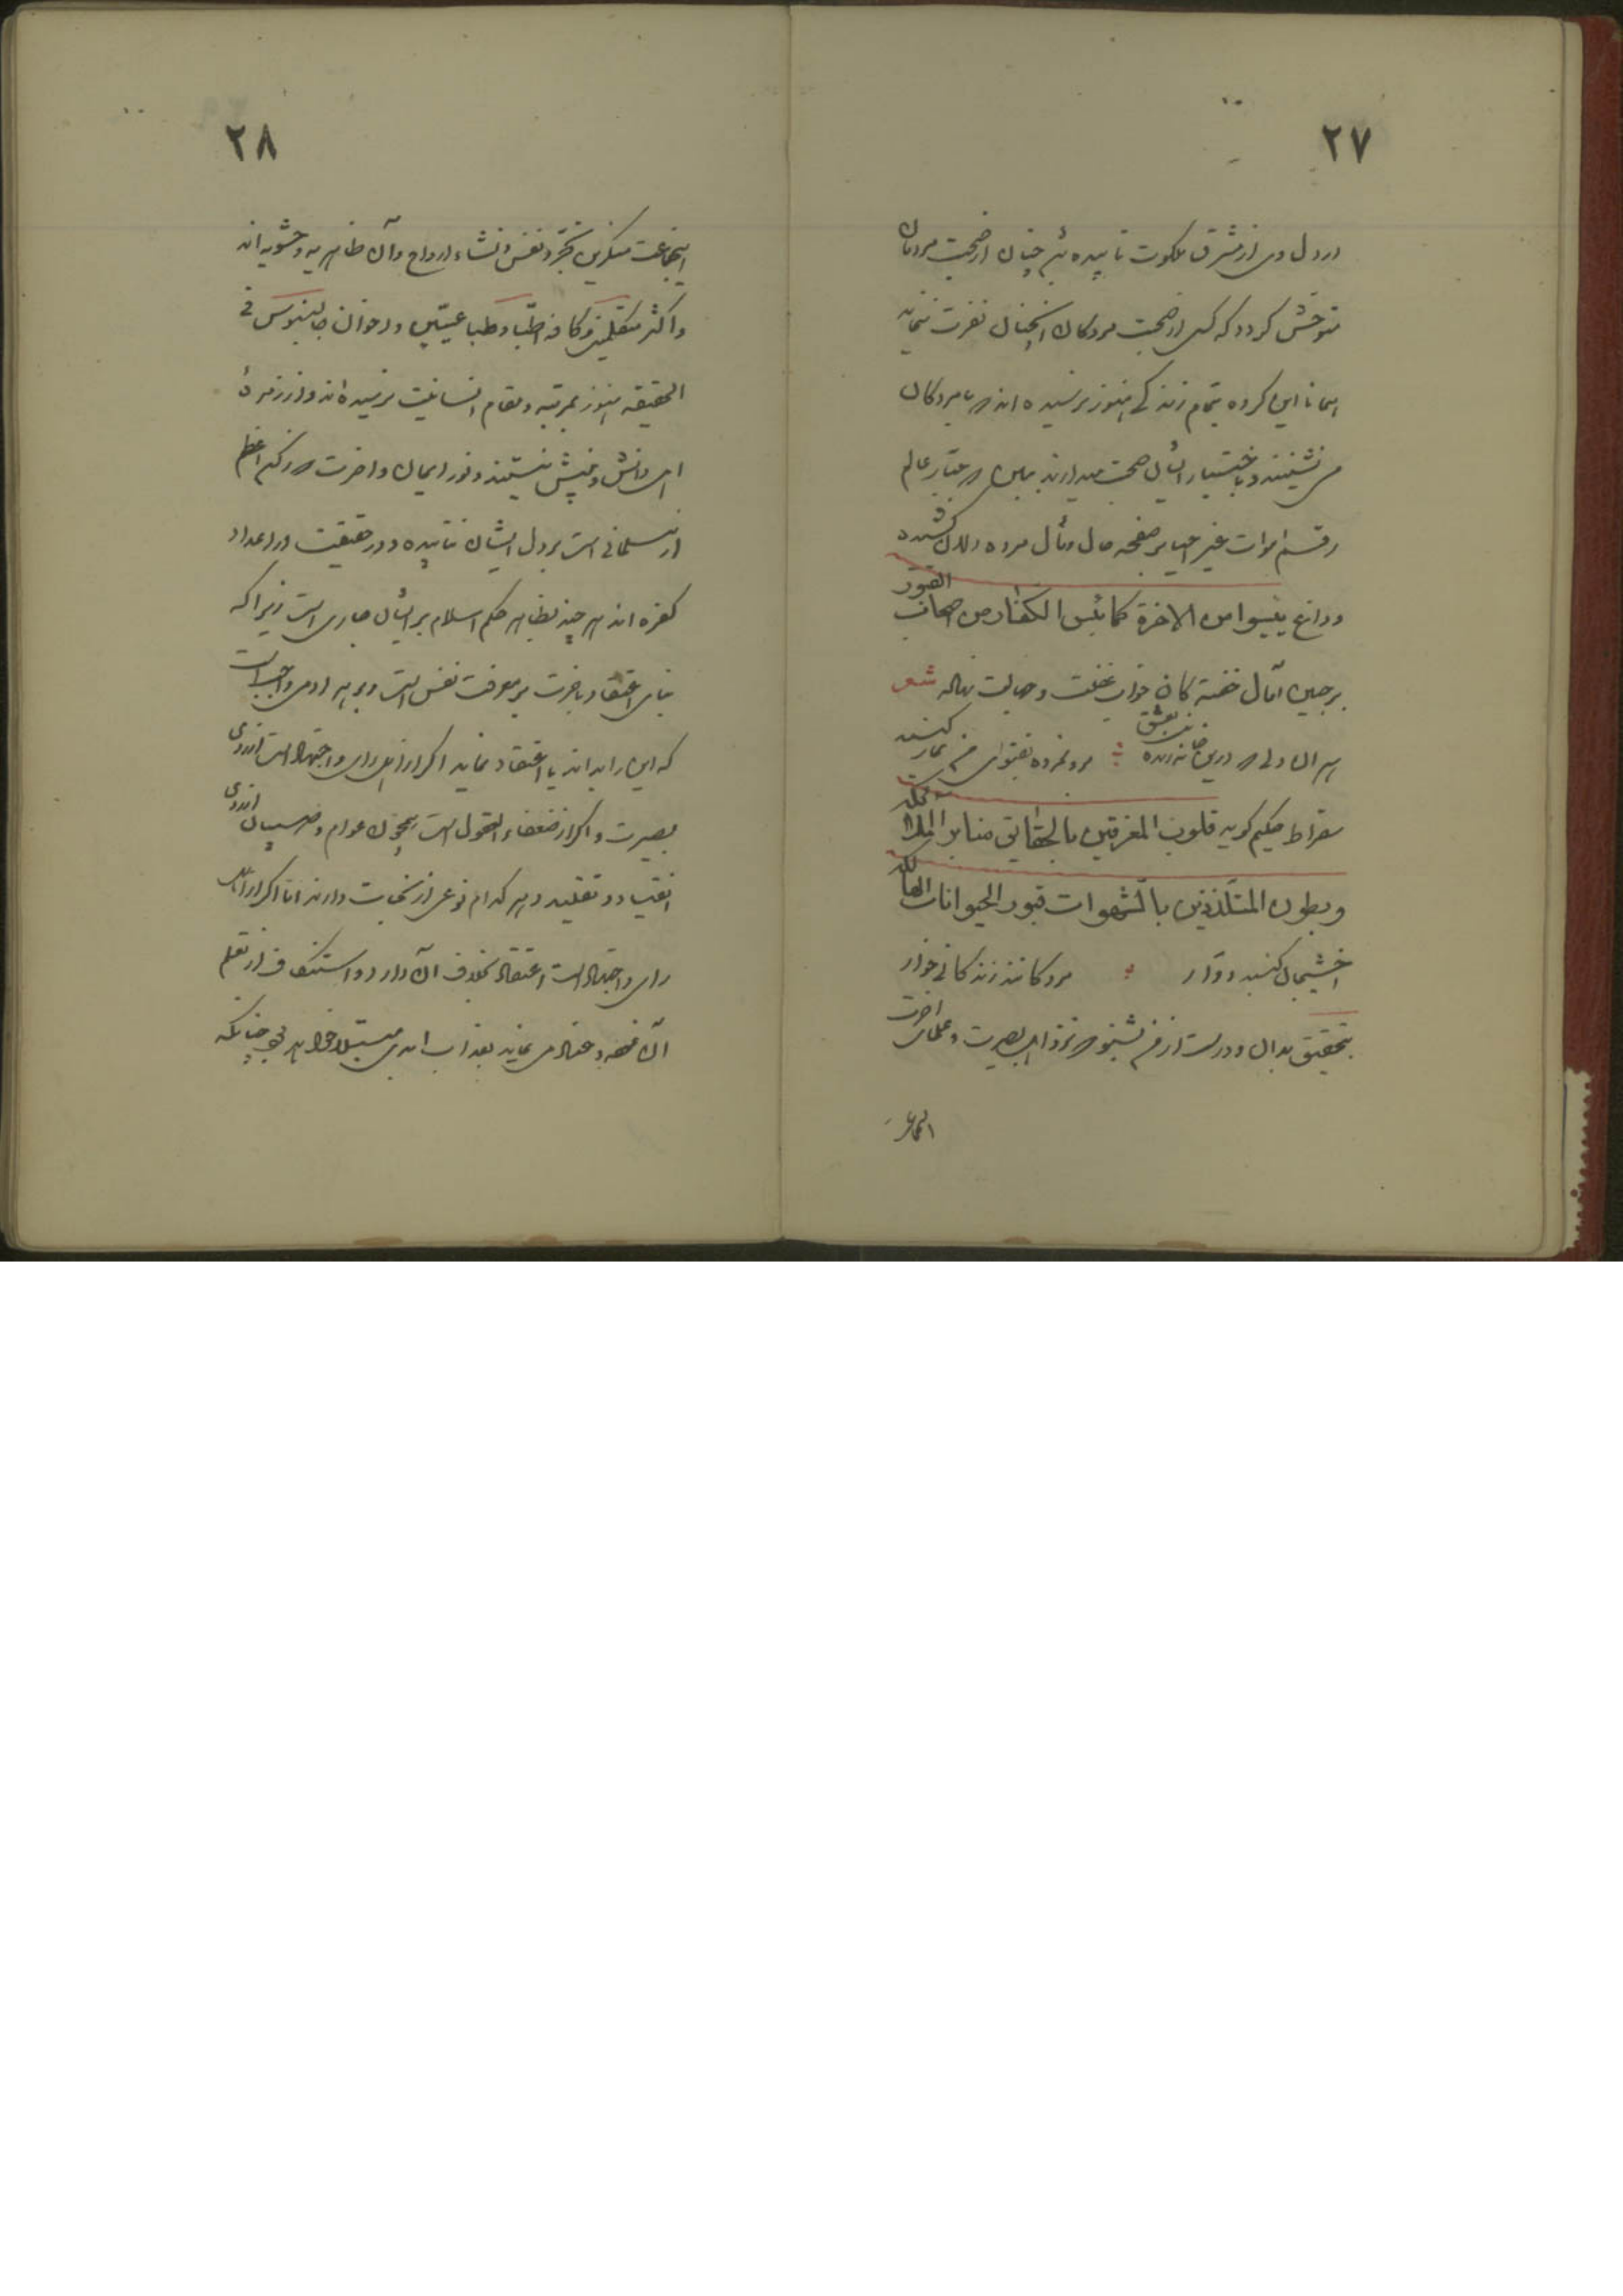 ۲۷
در دل وی از مشرق ملکوت تابیده شد چنان از صحبت مردمان
متوحش گردد که کس از صحبت مردگان آنچنان نفرت ننماید
همانا این گروه بمقام زندگی هنوز نرسیده اند که با مردگان
می نشینند و باختیار ایشان صحبت میدارند
رقم اموات غیر احیاء بر صفحه حال ومآل مرده دلان کشیده
وداغ یئسوا من الاخرة کما یئس الکفار من اصحاب القبور
بر جبین آمال خفته کان خواب غفلت وجهالت نهاده شعر
هر آن دلی که درین خانه زنده نیست بعشق برو نمرده بفتوای من نماز کنید
سقراط حکیم گوید قلوب المغرقین بالحقایق منابر الملائکة
وبطون المتلذذین بالشهوات قبور الحیوانات الهالکة
اخشیجان گنبد دوار مردگانند زندگانی خوار
بتحقیق بدان ودرست از من بشنو که نزد اهل بصیرت وعلمای اخرت
۲۸
اینجماعت منکرین تجرد نفس ونشاء ارواح وآن ظاهریه وحشویه اند
واکثر متکلمین وکافه اطبا وطباعیین واخوان جالینوس فی
الحقیقه هنوز بمرتبه ومقام انسانیت نرسیده اند واز زمرهٔ
اهل دانش وبینش نیستند ونور ایمان واخرت که رکن اعظم
از مسلمانی است بر دل ایشان نتابیده ودر حقیقت در اعداد
کفره اند هر چند بظاهر حکم اسلام بر ایشان جاری است زیرا که
بنای اعتقاد باخرت بر معرفت نفس است وبر هر ادمی واجب است
که این را بداند یا اعتقاد نماید اگر از اهل رای واجتهاد است از روی
بصیرت واگر از ضعفاء العقول است همچون عوام وصبیان از روی
انقیاد وتقلید وهر کدام نوعی از نجات دارند اما اگر از اهل
رای واجتهاد است اعتقاد بخلاف آن دارد واستنکاف از تعلم
آن نموده وعناد می نماید بعذاب ابدی مبتلا خواهد بود چنانکه